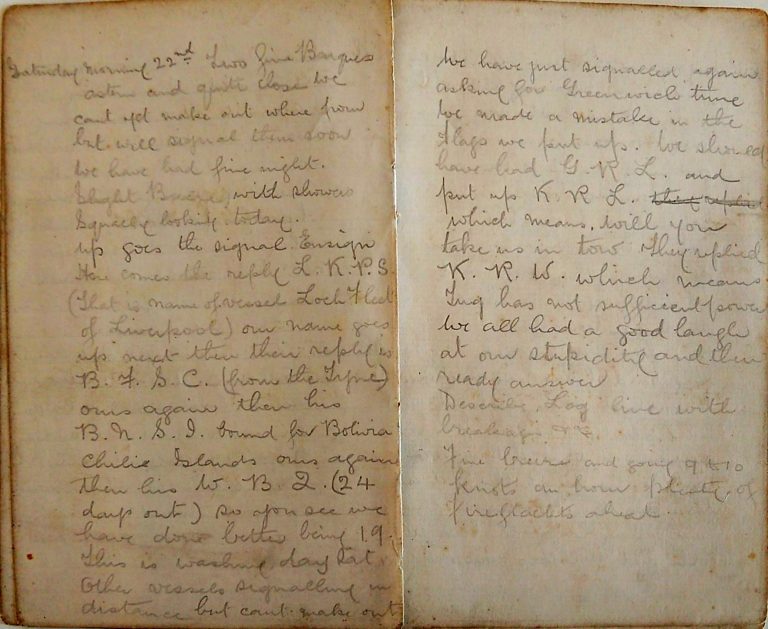 Saturday Morning 22nd Two fine Barques
astern and quite close we
cant yet make out where from
but will signal them soon
We have had fine night.
Slight Breeze with showers
Squally looking today.
up goes the signal Ensign
Here comes the reply L. K. P. S.
(That is name of vessel Loch Fleet
of Liverpool) our name goes
up next then their reply is
B. F. S. C. (from the Tyne)
ours again then his
B. N. S. I. bound for Bolivia
Chilie Islands ours again
then his W. B. Q. (24
days out) so you see we
have done better being 19.
This is washing day Sat.
Other vessels signalling in
distance but cant make out
We have just signalled again
asking for Greenwich time
We made a mistake in the
flags we put up. We should
have had G. R. L. and
put up K R L. they replied
which means, will you
take us in tow They replied
K. R. W. which means
Tug has not sufficient power
We all had a good laugh
at our stupidity and their
ready answer
Describe Log line with
breakage
Fine breeze and going 9 to 10
knots an hour plenty of
ahead